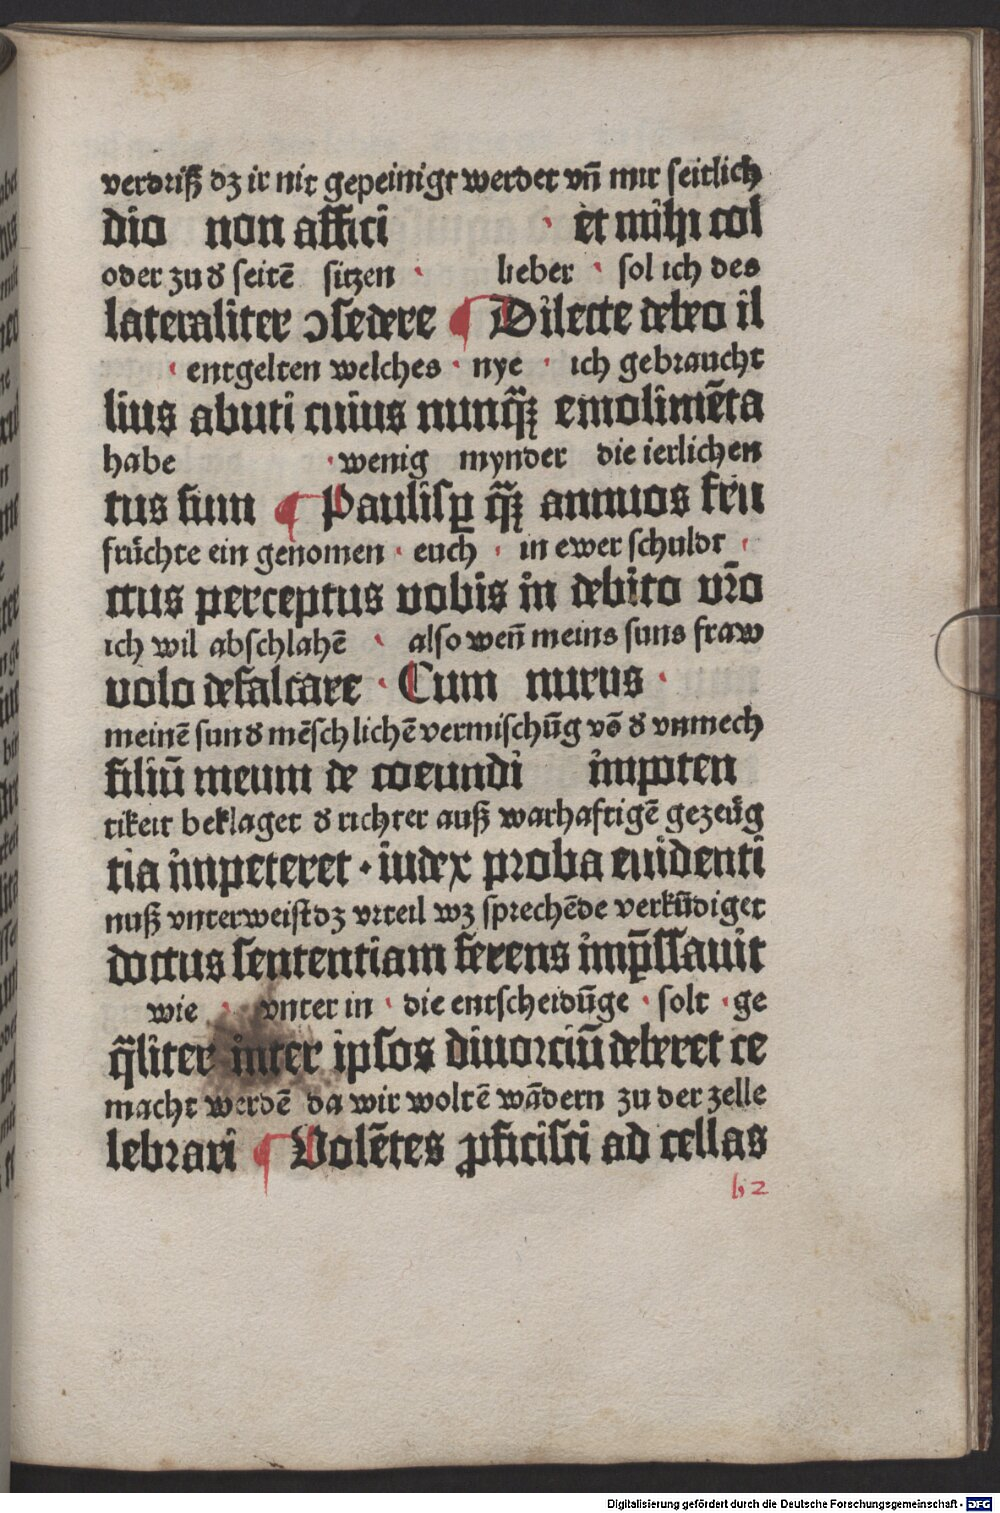 verdriß dz ir nit gepeinigt werdet vn̄ mir seitlich
dio non affici · et mihi col
oder zu d̕ seitē sitzen · lieber · sol ich des
lateraliter ↄsedere ¶ Dilecte debeo il
· entgelten welches · nye · ich gebraucht
lius abuti cuius nunq̄ꝫ emolimēta
habe · wenig mynder die ierlichen
tus sum ¶ Paulisꝑ q̄ꝫ annuos fru
früchte ein genomen · euch · in ewer schuldt ·
ctus perceptus vobis in debito vr̄o
ich wil abschlahē · also wen̄ meins suns fraw
volo defalcare · Cum nurus ·
meinē sun d̕ mēschlichē vermischūg vō d̕ vnmech
filiū meum de coeundi impoten
tikeit beklaget d̕ richter auß warhaftigē gezeüg
tia impeteret · iudex proba euidenti
nuß vnterweist dz vrteil wz sprechēde verkūdiget
doctus sententiam ferens imp̄ssauit
wie · vnter in · die entscheidūge · solt · ge
q̄liter inter ipsos diuorciū deberet ce
macht werdē da wir woltē wādern zu der zelle
lebrari ¶ Volētes ꝓficisci ad cellas
b 2
Digitalisierung gefördert durch die Deutsche Forschungsgemeinschaft - DFG